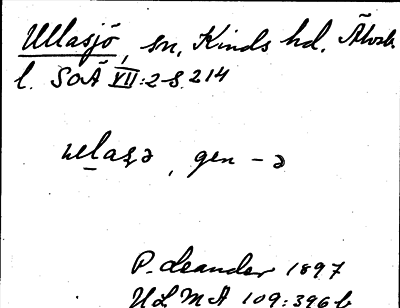 Ullasjö, sn, Kinds hd, Älvsb
l. SOÄ VII:2 s. 214
uelasə, gen -ə
P. Leander 1897
ULMA 109:396 b